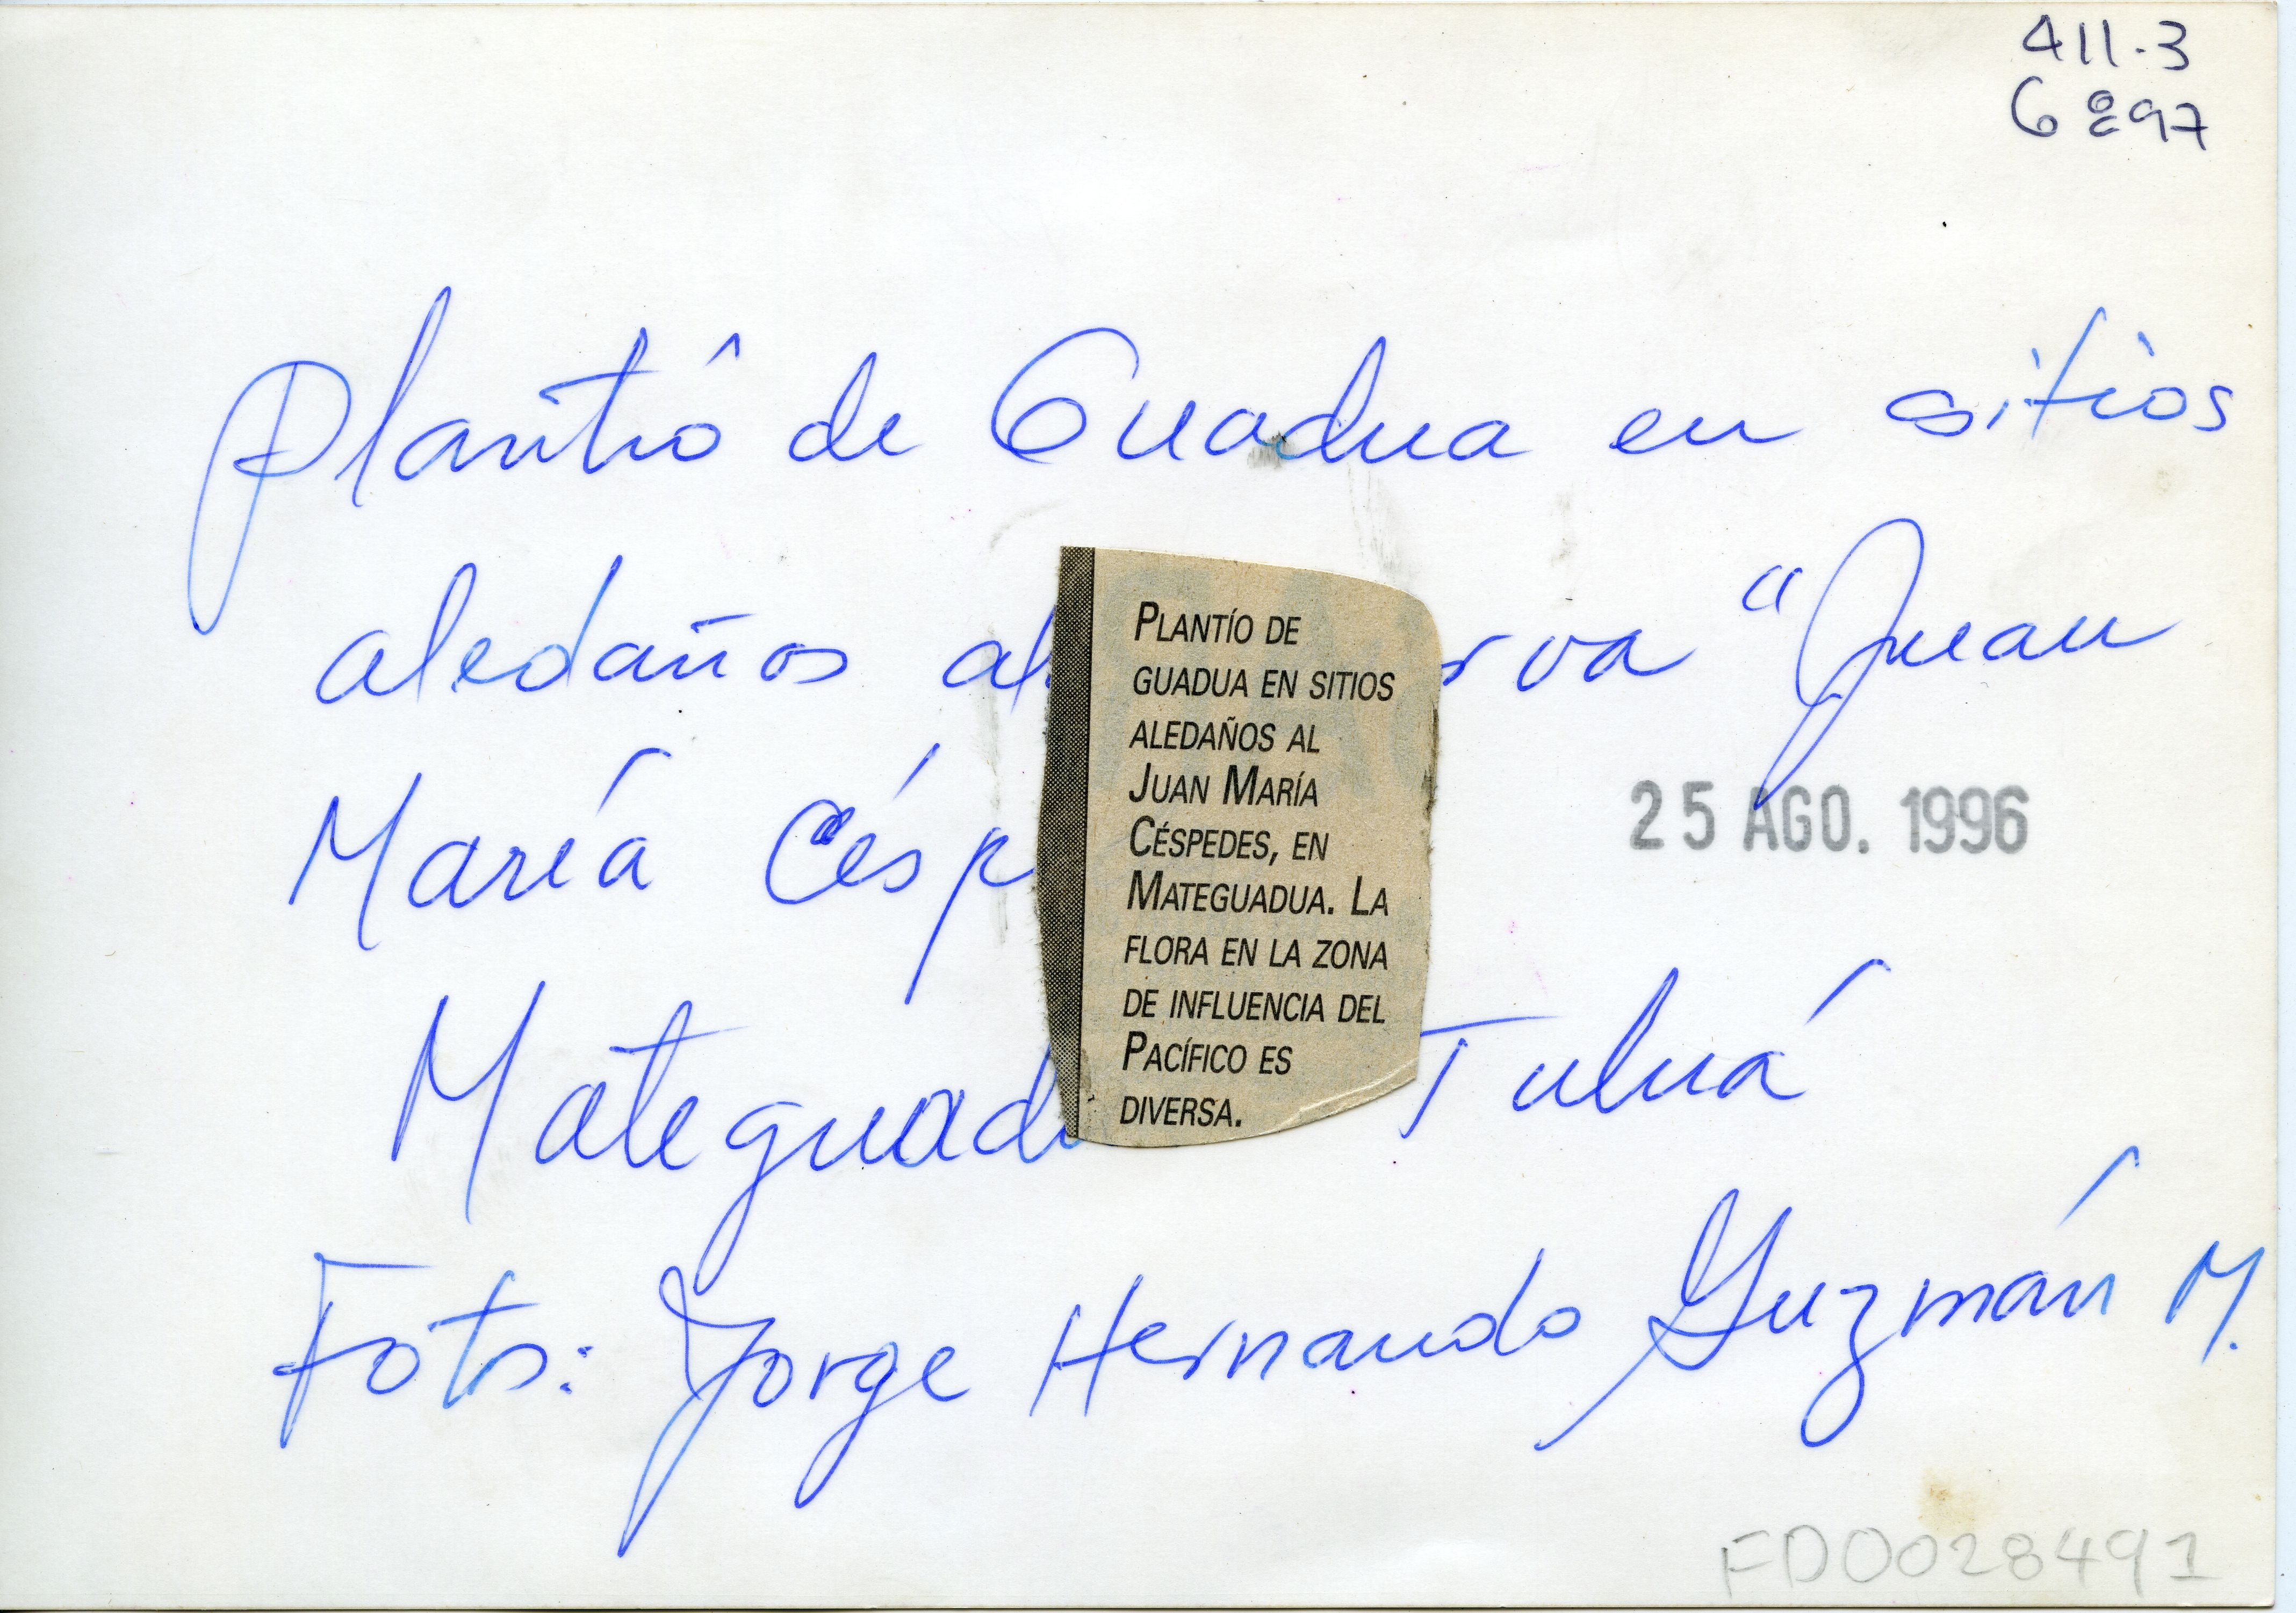 411-3
6897
Plantío de Guadua en sitios
aledaños al rva "Juan
María Césp
25 AGO. 1996
Mateguad Tuluá
Foto: Jorge Hernando Guzmán M.
PLANTÍO DE
GUADUA EN SITIOS
ALEDAÑOS AL
JUAN MARÍA
CÉSPEDES, EN
MATEGUADUA. LA
FLORA EN LA ZONA
DE INFLUENCIA DEL
PACÍFICO ES
DIVERSA.
FD0028491